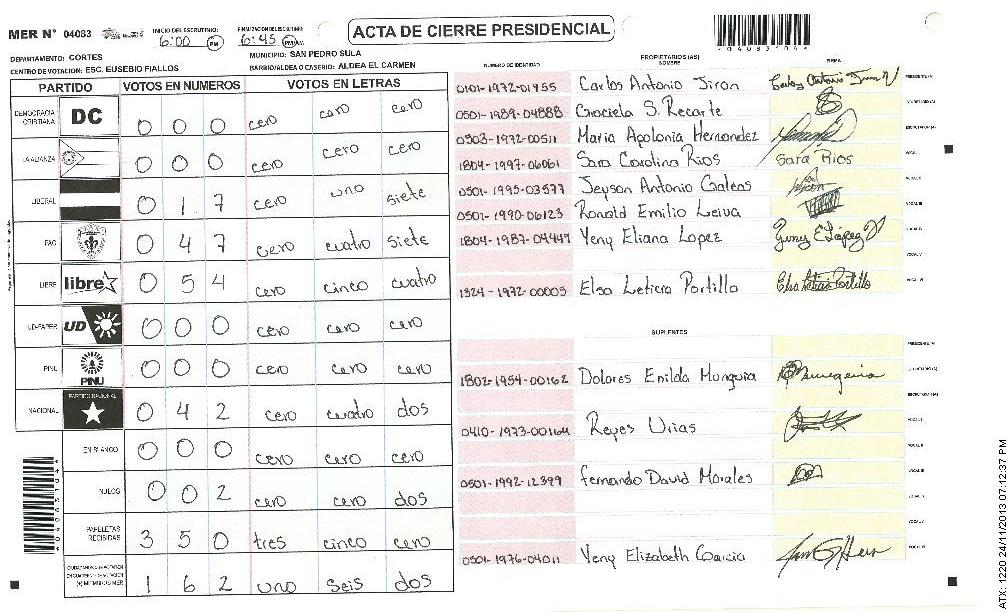 MER N° 04083
INICIO DEL ESCRUTINIO:
6:00 PM
FINALIZACION DEL ESCRUTINIO:
6:45 PM
ACTA DE CIERRE PRESIDENCIAL
DEPARTAMENTO: CORTES
MUNICIPIO: SAN PEDRO SULA
CENTRO DE VOTACION: ESC. EUSEBIO FIALLOS
BARRIO/ALDEA O CASERIO: ALDEA EL CARMEN
PARTIDO VOTOS EN NUMEROS VOTOS EN LETRAS
DEMOCRACIA CRISTIANA DC 0 0 0 cero cero cero
LA ALIANZA 0 0 0 cero cero cero
LIBERAL 0 1 7 cero uno siete
PAC 0 4 7 cero cuatro siete
LIBRE libre 0 5 4 cero cinco cuatro
UD-FAPER UD 0 0 0 cero cero cero
PINU PINU 0 0 0 cero cero cero
NACIONAL PARTIDO NACIONAL 0 4 2 cero cuatro dos
EN BLANCO 0 0 0 cero cero cero
NULOS 0 0 2 cero cero dos
PAPELETAS RECIBIDAS 3 5 0 tres cinco cero
1 6 2 uno seis dos
NUMERO DE IDENTIDAD
PROPIETARIOS (AS)
NOMBRE
FIRMA
0101-1972-01455 Carlos Antonio Jiron
0501-1989-04888 Graciela S. Recarte
0503-1972-00511 Maria Apolonia Hernandez
1804-1997-06061 Sara Carolina Rios Sara Rios
0501-1995-03577 Jeyson Antonio Galeas
0501-1990-06123 Ronald Emilio Leiva
1804-1987-04447 Yeny Eliana Lopez Yeny E López
1324-1972-00005 Elsa Leticia Portillo Elsa Leticia Portillo
SUPLENTES
1802-1954-00162 Dolores Enilda Munguia
0410-1973-00164 Reyes Urias
0501-1992-12399 Fernando David Morales
0501-1976-04011 Yeny Elizabeth Garcia
ATX: 1220 24/11/2013 07:12:37 PM